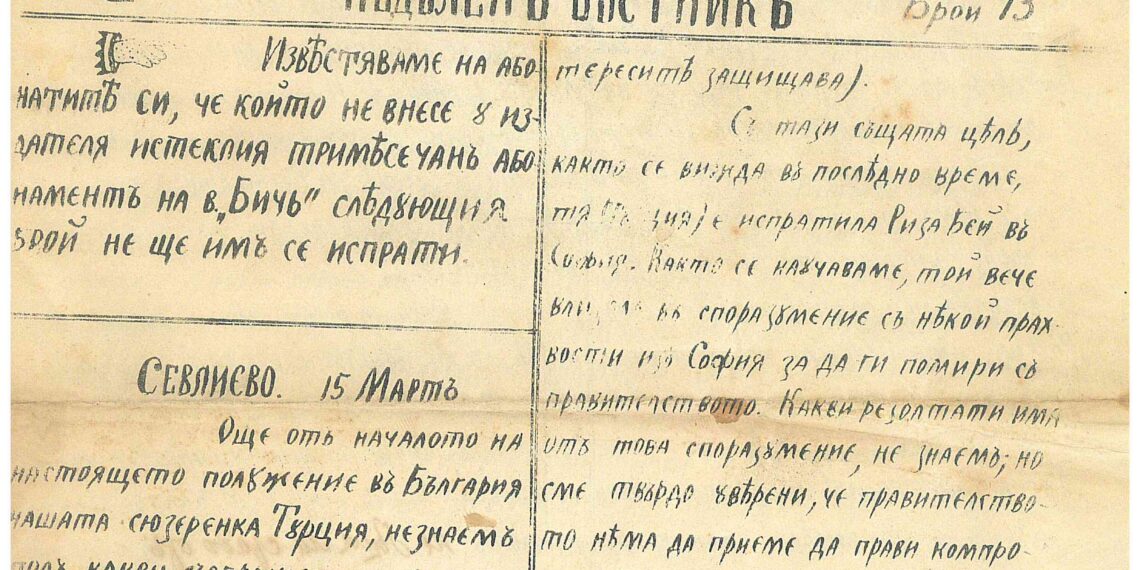 Брой 13
Извѣстяваме на або-
натитѣ си, че който не внесе у из-
дателя истеклия тримѣсечанъ або-
наментъ на в. „Бичъ" слѣдующия
брой не ще имъ се испрати.
Севлиево. 15 Мартъ
Още отъ началото на
настоящето положение въ България
нашата сюзеренка Турция, незнаемъ
какви
тереситѣ защищава).
Съ тази същата цѣль,
както се вижда въ послѣдно време,
тя е испратила Риза Бей въ
София. Както се научаваме, той вече
споразумение съ нѣкой прах-
вости изъ София за да ги помири съ
правителството. Какви резолтати има
отъ това споразумение, не знаемъ; но
сме твърдо увѣрени, че правителство-
то нѣма да приеме да прави компро-